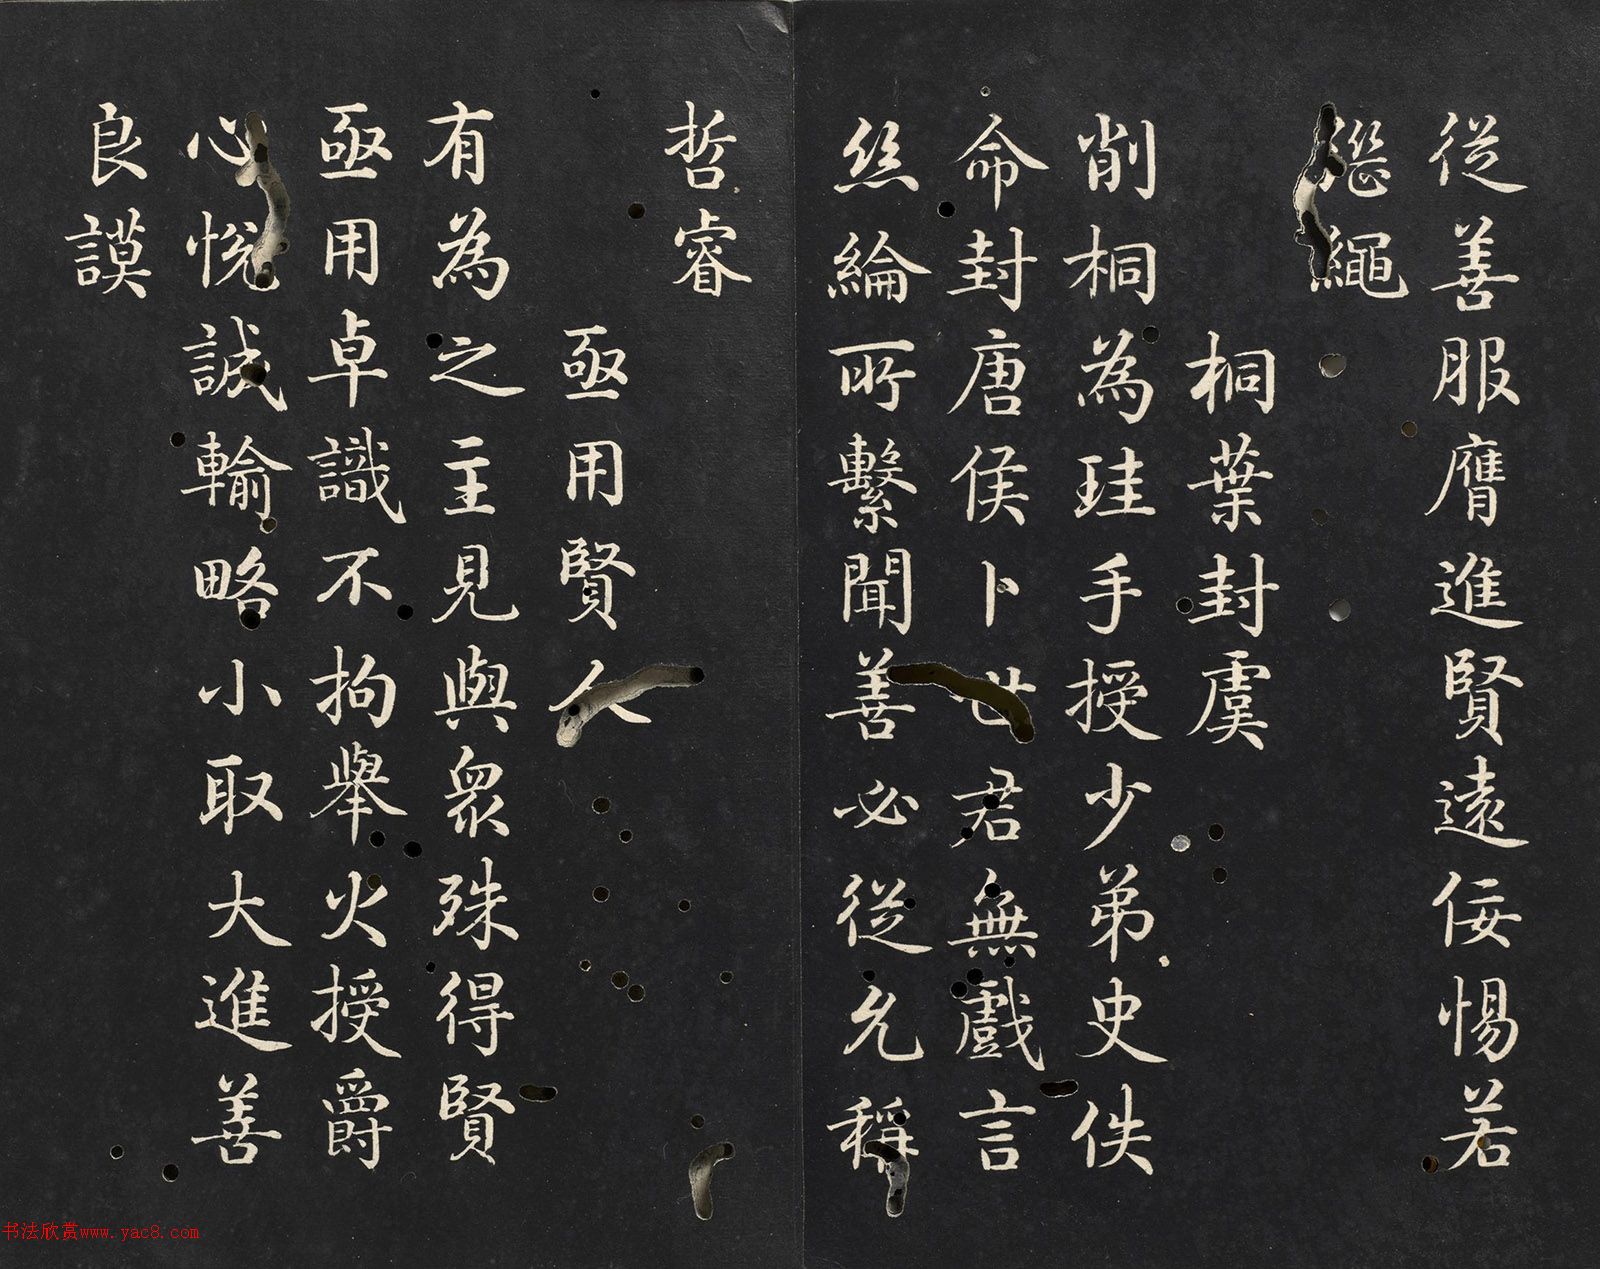 從善服膺進賢遠佞惕若
愆繩
桐葉封虞
削桐為珪手授少弟史佚
命封唐侯卜世君無戲言
絲綸所繫聞善必從允稱
哲睿
亟用賢人
有為之主見與衆殊得賢
亟用卓識不拘舉火授爵
心悅誠輸略小取大進善
良謨
书法欣赏www.yac8.com